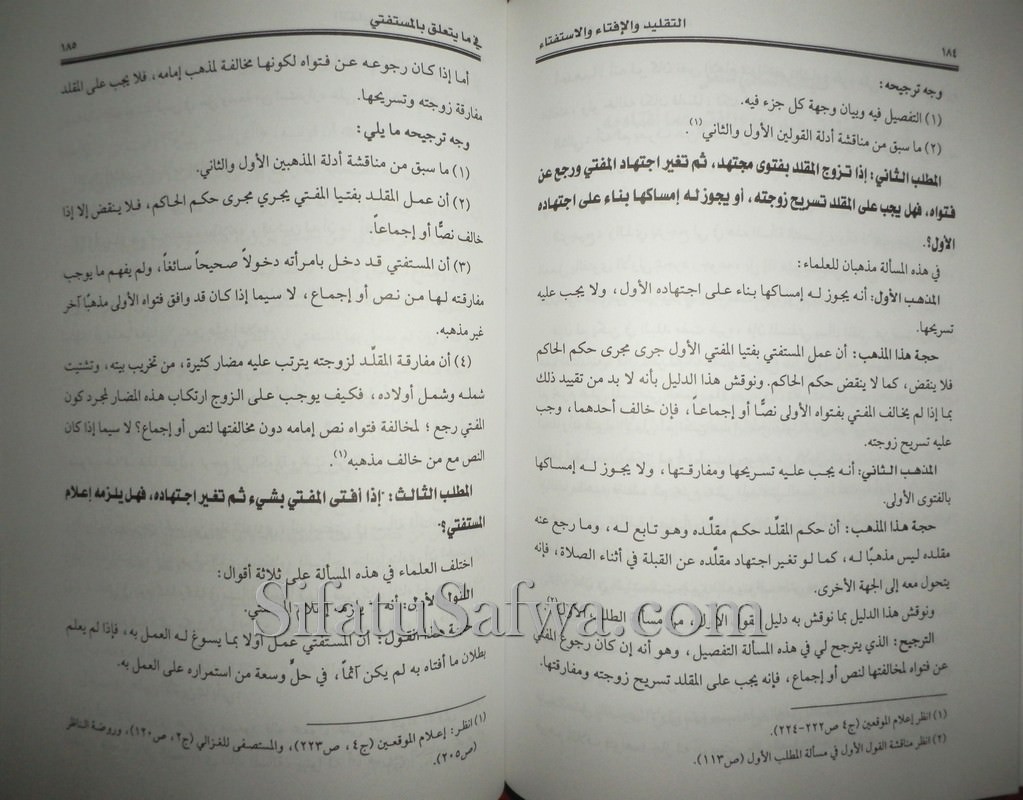 ١٨٤
التقليد والإفتاء والاستفتاء
وجه ترجيحه:
(١) التفصيل فيه وبيان وجهة كل جزء فيه.
(٢) ما سبق من مناقشة أدلة القولين الأول والثاني(١).
المطلب الثاني: إذا تزوج المقلد بفتوى مجتهد، ثم تغير اجتهاد المفتي ورجع عن
فتواه، فهل يجب على المقلد تسريح زوجته، أو يجوز له إمساكها بناء على اجتهاده
الأول؟.
في هذه المسألة مذهبان للعلماء:
المذهب الأول: أنه يجوز له إمساكها بناء على اجتهاده الأول، ولا يجب عليه
تسريحها.
حجة هذا المذهب: أن عمل المستفتي بفتيا المفتي الأول جرى مجرى حكم الحاكم
فلا ينقض، كما لا ينقض حكم الحاكم. ونوقش هذا الدليل بأنه لا بد من تقييد ذلك
بما إذا لم يخالف المفتي بفتواه الأولى نصًّا أو إجماعاً، فإن خالف أحدهما، وجب
عليه تسريح زوجته.
المذهب الثاني: أنه يجب عليه تسريحها ومفارقتها، ولا يجوز له إمساكها
بالفتوى الأولى.
حجة هذا المذهب: أن حكم المقلّد حكم مقلّده وهو تابع له، وما رجع عنه
مقلده ليس مذهبًا له، كما لو تغير اجتهاد مقلّده عن القبلة في أثناء الصلاة، فإنه
يتحول معه إلى الجهة الأخرى.
ونوقش هذا الدليل بما نوقش به دليل القول الأول، من مسألة المطلب الأول(٢).
الترجيح: الذي يترجح لي في هذه المسألة التفصيل، وهو أنه إن كان رجوع المفتي
عن فتواه لمخالفتها لنص أو إجماع، فإنه يجب على المقلد تسريح زوجته ومفارقتها.
(١) انظر إعلام الموقعين (ج٤ ص٢٢٢-٢٢٤).
(٢) انظر مناقشة القول الأول في مسألة المطلب الأول (ص١١٣).
في ما يتعلق بالمستفتي
١٨٥
أما إذا كان رجوعه عن فتواه لكونها مخالفة لمذهب إمامه، فلا يجب على المقلد
مفارقة زوجته وتسريحها.
وجه ترجيحه ما يلي:
(١) ما سبق من مناقشة أدلة المذهبين الأول والثاني.
(٢) أن عمل المقلد بفتيا المفتي يجري مجرى حكم الحاكم، فلا ينقض إلا إذا
خالف نصًّا أو إجماعاً.
(٣) أن المستفتي قد دخل بامرأته دخولاً صحيحاً سائغاً، ولم يفهم ما يوجب
مفارقته لها من نص أو إجماع، لا سيما إذا كان قد وافق فتواه الأولى مذهبًا آخر
غير مذهبه.
(٤) أن مفارقة المقلّد لزوجته يترتب عليه مضار كثيرة، من تخريب بيته، وتشتيت
شمله وشمل أولاده، فكيف يوجب على الزوج ارتكاب هذه المضار لمجرد كون
المفتي رجع؛ لمخالفة فتواه نص إمامه دون مخالفتها لنص أو إجماع؟ لا سيما إذا كان
النص مع من خالف مذهبه(١).
المطلب الثالث: إذا أفتى المفتي بشيء ثم تغير اجتهاده، فهل يلزمه إعلام
المستفتي؟.
اختلف العلماء في هذه المسألة على ثلاثة أقوال:
القول الأول: أنه لا يلزمه إعلام المستفتي.
حجة هذا القول: أن المستفتي عمل أولا بما يسوغ له العمل به، فإذا لم يعلم
بطلان ما أفتاه به لم يكن آثماً، في حلٍّ وسعة من استمراره على العمل به.
(١) انظر: إعلام الموقعين (ج٤، ص٢٢٣)، والمستصفى للغزالي (ج٢، ص١٢٠)، وروضة الناظر
(ص٢٠٥).
SifatuSafwa.com